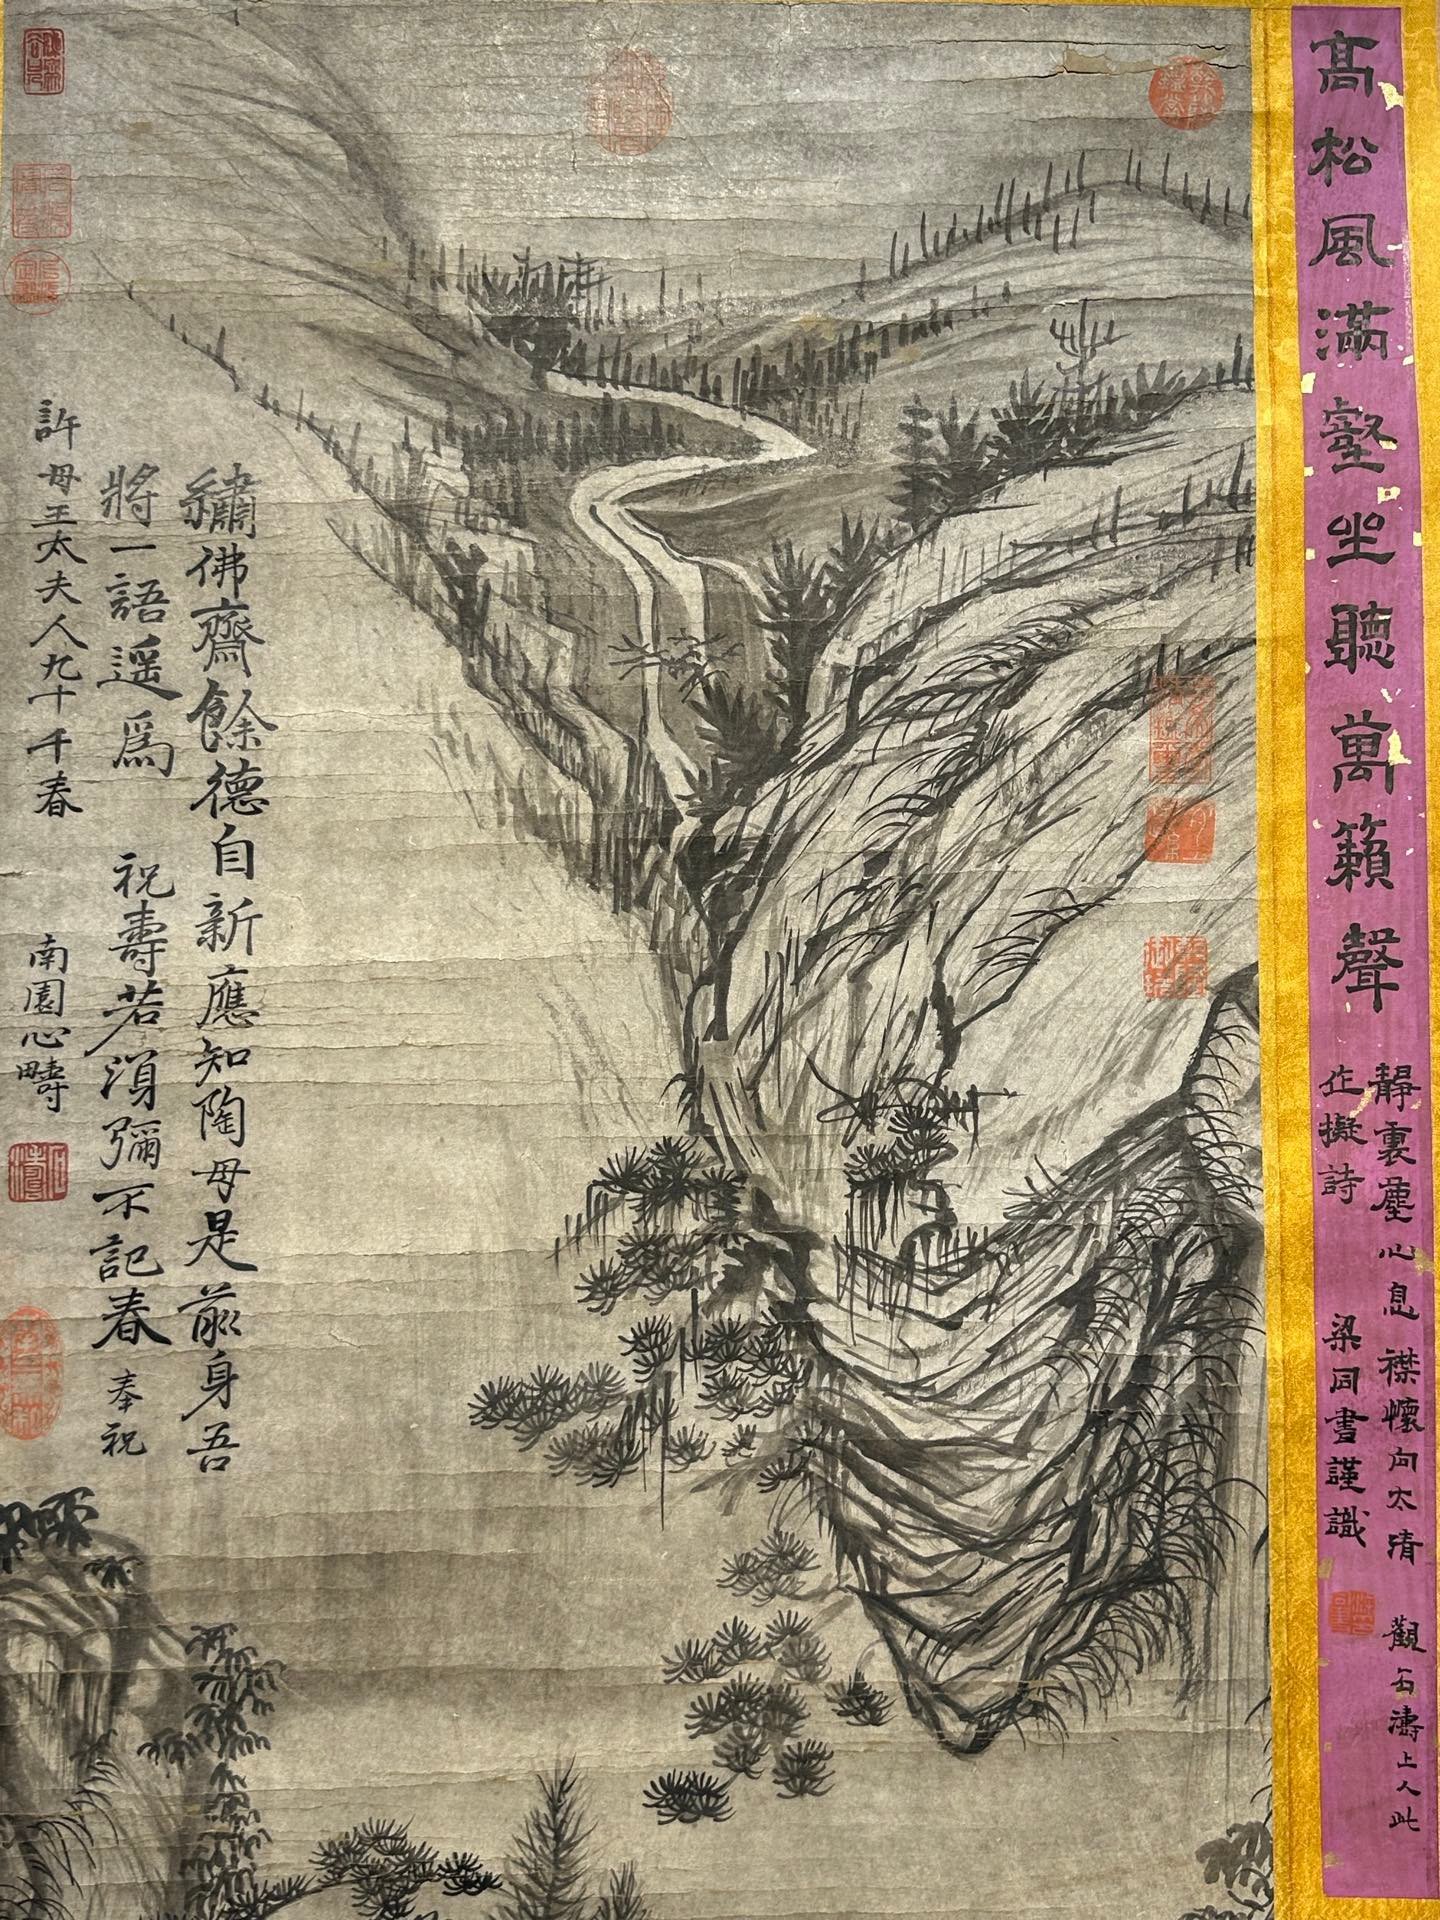 高松風滿壑坐聽萬籟聲
靜裏塵心息 襟懷向太清 觀石濤上人此
作擬詩 梁同書謹識
繡佛齋餘德自新應知陶母是前身吾
將一語遥爲 祝壽若湏彌不記春 奉祝
許母王太夫人九十千春 南園心疇